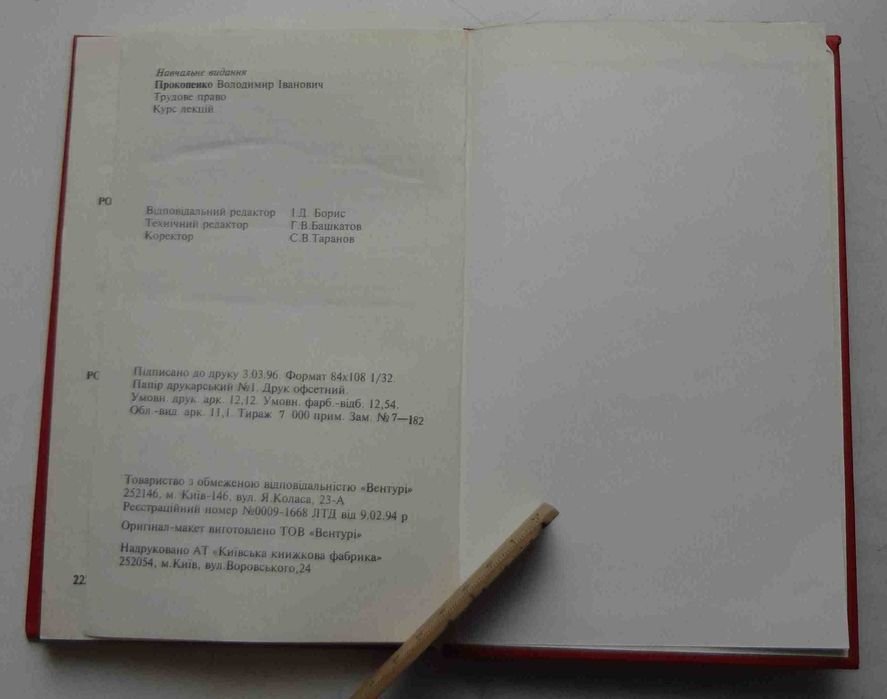 Навчальне видання
Прокопенко Володимир Іванович
Трудове право
Курс лекцій
РО
Відповідальний редактор І.Д. Борис
Технічний редактор Г.В.Башкатов
Коректор С.В.Таранов
РО
Підписано до друку 3.03.96. Формат 84х108 1/32.
Папір друкарський №1. Друк офсетний.
Умовн. друк. арк. 12,12. Умовн. фарб.-відб. 12,54.
Обл.-вид. арк. 11,1. Тираж 7 000 прим. Зам. №7—182
Товариство з обмеженою відповідальністю «Вентурі»
252146, м. Київ-146, вул. Я.Коласа, 23-А
Реєстраційний номер №0009-1668 ЛТД від 9.02.94 р
Оригінал-макет виготовлено ТОВ «Вентурі»
Надруковано АТ «Київська книжкова фабрика»
252054, м.Київ, вул.Воровського,24
22